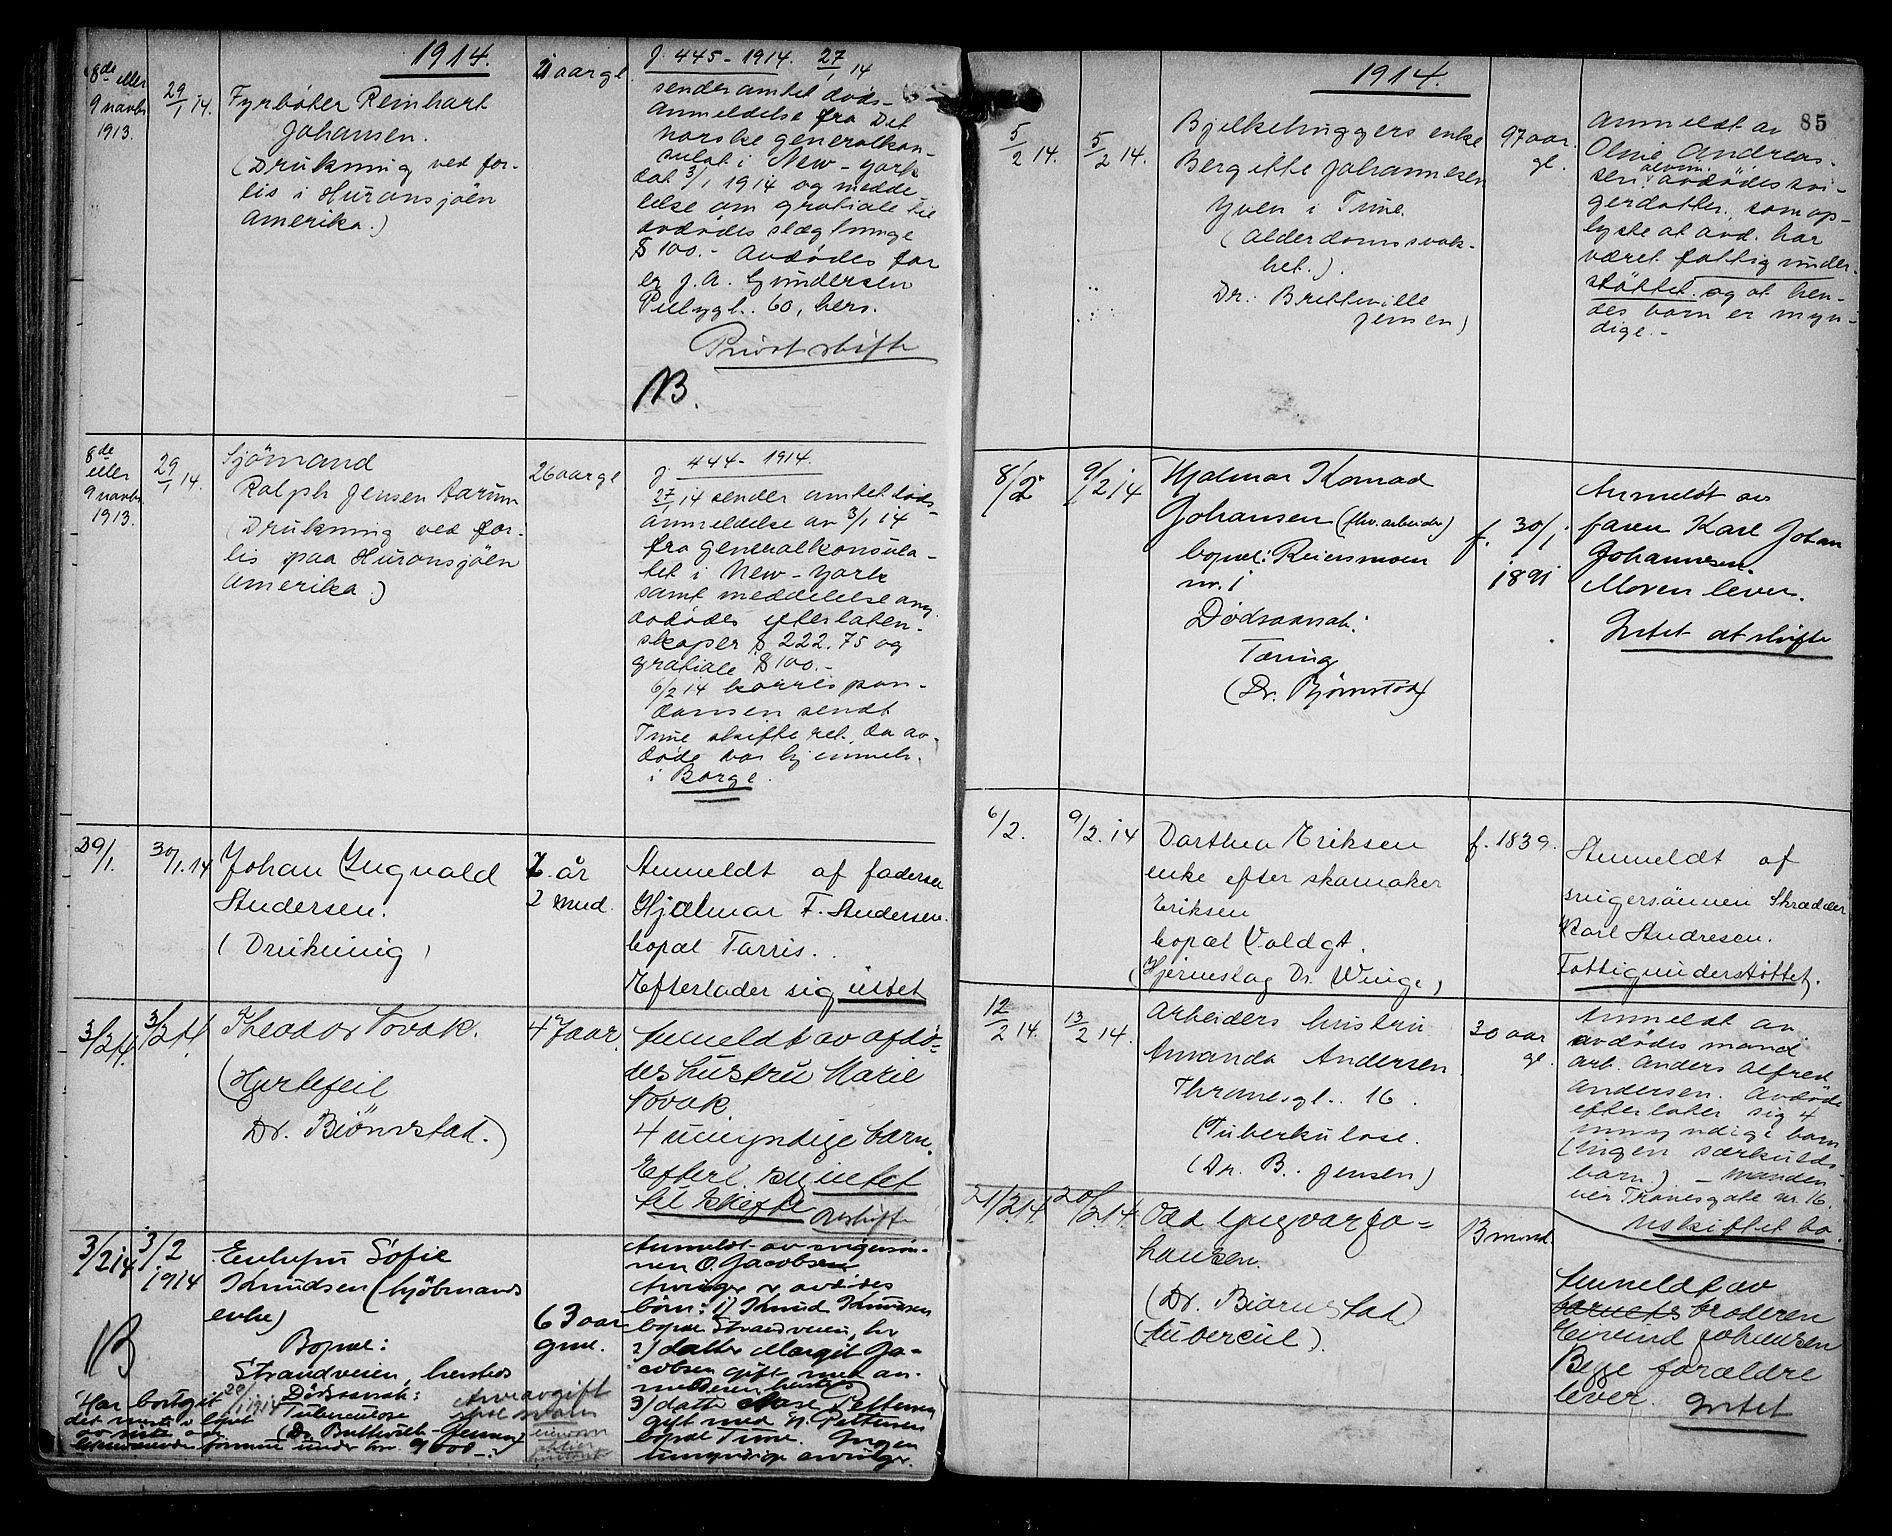 1914.
8de eller
9 novbr
1913.
29/1 14.
Fyrbøter Reinhart
Johansen.
(Drukning ved for-
lis i Huronsjöen
Amerika.)
21 aar gl.
J. 445 - 1914. 27/1 14
sender amtet døds-
anmeldelse fra Det
norske generalkon-
sulat i New-York
dat 3/1 1914 og medde
lelse om gratiale til
avdødes slægtninge
$ 100.- Avdødes far
er J. A. Gundersen
60, hers.
Privat skifte
NB.
8de
eller
9 novbr
1913.
29/1 14.
Sjömand
Ralph Jensen Aarum
(Drukning ved for-
lis paa Huronsjöen
Amerika.)
26 aar gl
J. 444 - 1914.
27/1 14 sender amtet döds-
anmeldelse av 3/1 14
fra generalkonsula-
tet i New-York
samt meddelelse ang.
avdødes efterlaten-
skaper $ 222.75 og
gratiale $ 100.-
6/2 14 korrespon-
dansen sendt
Tune skifteret, da av-
døde var hjemmeh.
i Borge.
29/1.
30/1.14
Johan Ingvald
Andersen.
(Drukning)
7 år
2 mnd.
Anmeldt af faderen
Hjalmar F. Andersen.
bopæl Tarris.
Efterlader sig intet
3/2 14
3/2 14
Theodor Novak.
(Hjertefeil
Dr. Biørnstad.)
47 aar.
Anmeldt av afdø-
des hustru Marie
Novak.
4 umyndige børn.
Efterl. sig intet
til skifte
Uskifte
3/2 14
3/2
1914
Sofie
Knudsen (kjöbmands
enke)
Bopæl:
Strandveien, hersteds
Dödsaarsak:
Tuberculose
(Dr. Butteville-Jensen)
63 aar
gml.
Anmeldt av svigersön-
nen O. Jacobsen
Arvinger er avdödes
børn: 1) Knud Knudsen
bopæl Strandveien, hv
2) datter Margit Ja-
cobsen gift med an-
melderen hersteds
3) datter Aase Pettersen
gift med H. Pettersen
bopæl Tune. Ingen
umyndige arvinger.
B
Har bortgit 20/1 1914
formue under kr 9000.-
Arveavgift
1914.
85
5/2 14.
5/2 14.
Bjelkehuggers enke
Bergitte Johannesen
Yven i Tune.
(Alderdomssvak-
het.).
Dr. Britteville
Jensen)
97 aar.
gl.
Anmeldt av
Oline Andreas-
sen, avdødes svi-
gerdatter, som op-
lyste at avd. har
været fattigunder-
støttet og at hen-
des barn er myn-
dige.-
8/2
9/2 14
Hjalmar Konrad
Johansen (fhv. arbeider)
bopæl: Reiersmoen
nr. 1
Dødsaarsak:
Tæring
(Dr. Bjørnstad)
f. 30/1.
1891
Anmeldt av
faren Karl Johan
Johannesen
Moren lever.
Intet at skifte
6/2.
9/2.14
Dorthea Eriksen
enke efter skomaker
Eriksen
bopæl Voldgt.
(Hjerneslag Dr. Winge)
f. 1839.
Anmeldt af
svigersönnen Skrædder
Karl Andresen.
Fattigunderstöttet.
12/2 14.
13/2 14.
Arbeiders hustru
Amanda Andersen
Thranesgt. 16.
(Tuberkulose.
(Dr. B. Jensen)
30 aar
gl.
Anmeldt av
avdødes mand
arb. Anders Alfred
Andersen. Avdøde
efterlater sig 4
umyndige barn
(ingen særkulds
barn.) - Manden
Tranesgate nr. 16.
Uskiftet bo.
21/2 14.
20/2 14.
Odd Jo-
hansen.
(Dr. Biørnstad)
(tubercul).
3 mnd.
Anmeldt av
barnets broderen
Johansen
Begge forældre
lever. Intet